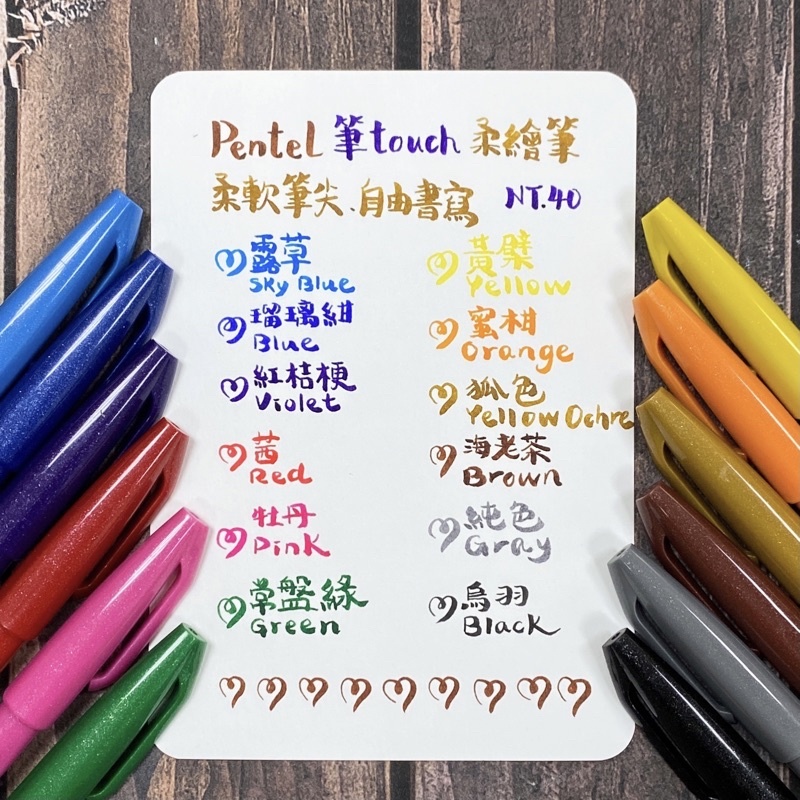 Pentel 筆touch 柔繪筆
柔軟筆尖、自由書寫 NT.40
露草
Sky Blue
瑠璃紺
Blue
紅桔梗
Violet
茜
Red
牡丹
Pink
常盤綠
Green
黃檗
Yellow
蜜柑
Orange
狐色
Yellow Ochre
海老茶
Brown
純色
Gray
烏羽
Black